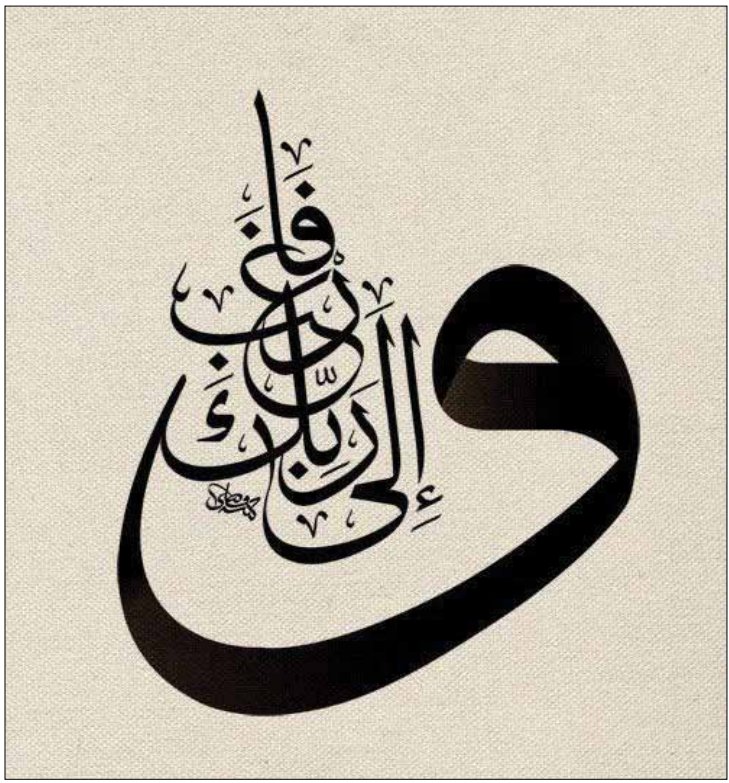 وَإِلَىٰ رَبِّكَ فَارْغَب